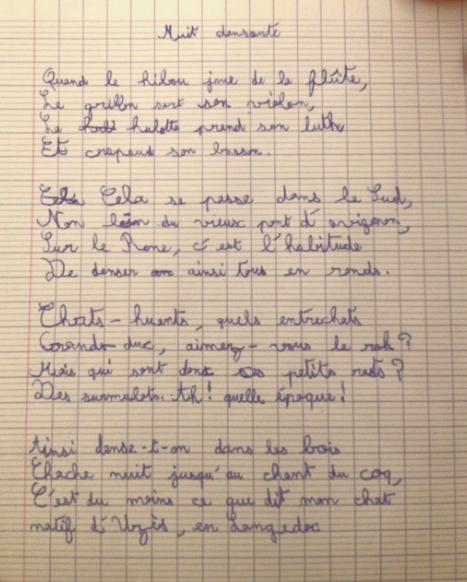 Nuit dansante
Quand le hibou joue de la flûte,
Le grillon sort son violon,
La hulotte prend son luth
Et crapaud son basson.
Cela se passe dans le Sud,
Non loin du vieux pont d'avignon,
Sur le Rone, c'est l'habitude
De danser ainsi tous en ronds.
Chats-huants, quels entrechats
Grands-duc, aimez-vous le rok?
Mais qui sont donc ces petits rats?
Des surmulots. Ah! quelle époque!
Ainsi danse-t-on dans les bois
Chache nuit jusqu'au chant du coq,
C'est du moins ce que dit mon chat
natif d'Uzès, en Langedoc